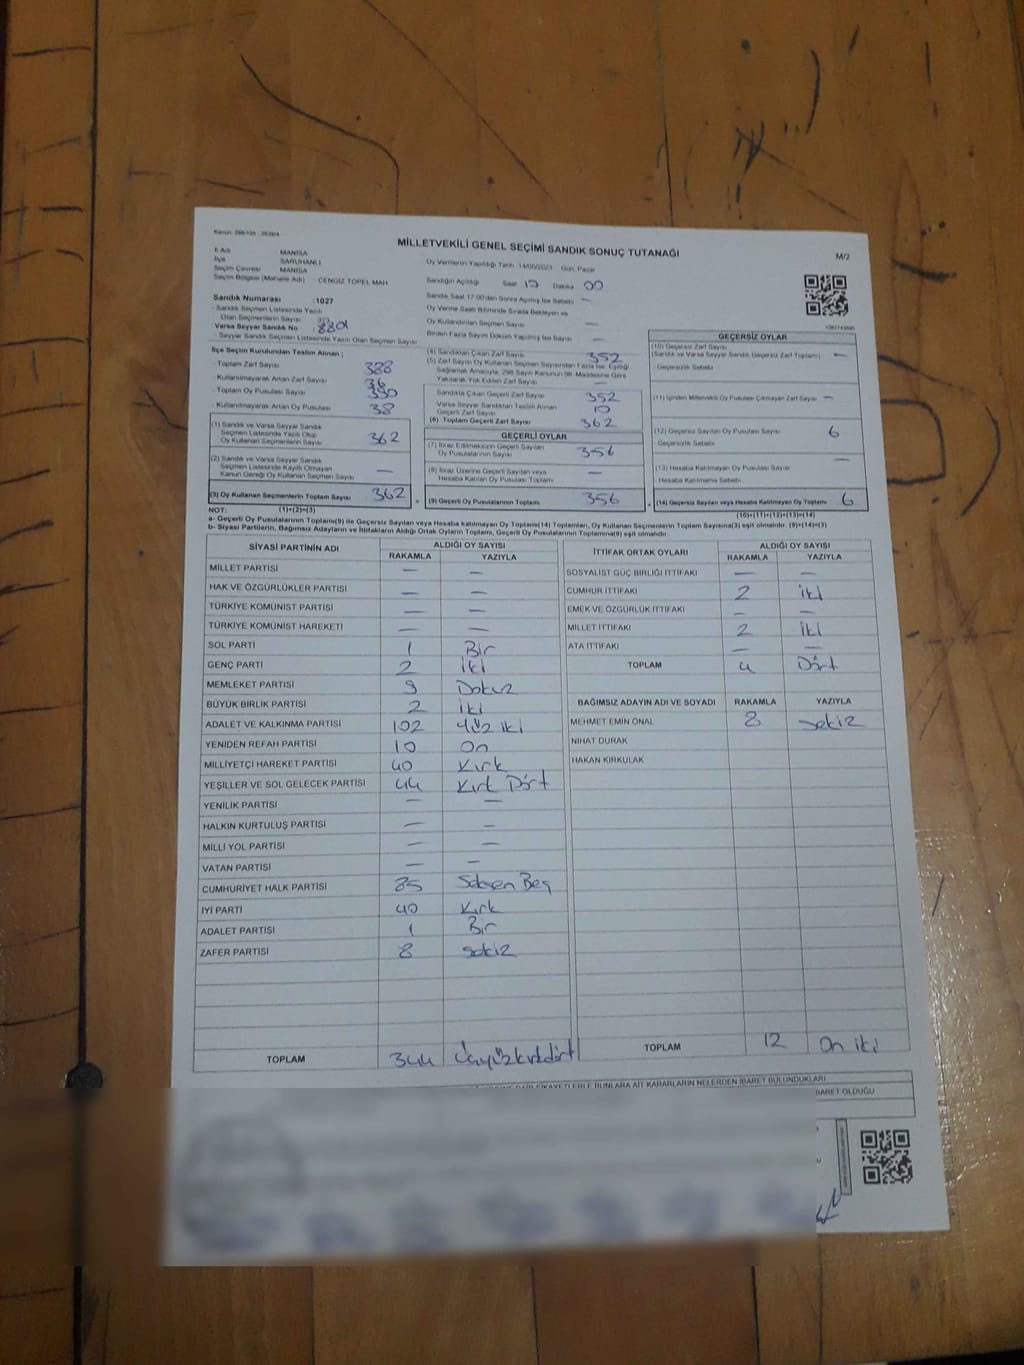 MİLLETVEKİLİ GENEL SEÇİMİ SANDIK SONUÇ TUTANAĞI
M/2
İl Adı MANİSA
İlçe SARUHANLI
Seçim Çevresi MANİSA
Seçim Bölgesi (Mahalle Adı) CENGİZ TOPEL MAH
Oy Verilmenin Yapıldığı Tarih 14/05/2023 Gün Pazar
Sandığın Açıldığı Saat Dakika 00
Sandık Numarası :1027
Sandık Seçmen Listesinde Yazılı
Olan Seçmenlerin Sayısı 373
Varsa Seyyar Sandık No
Seyyar Sandık Seçmen Listesinde Yazılı Olan Seçmen Sayısı
Sandık Saat 17:00'den Sonra Açılmış İse Sebebi —
Oy Verme Saati Bitiminde Sırada Bekleyen ve
Oy Kullandırılan Seçmen Sayısı —
Birden Fazla Sayım Döküm Yapılmış İse Sayısı —
İlçe Seçim Kurulundan Teslim Alınan ;
Toplam Zarf Sayısı 388
Kullanılmayarak Artan Zarf Sayısı
Toplam Oy Pusulası Sayısı
Kullanılmayarak Artan Oy Pusulası 38
(1) Sandık ve Varsa Seyyar Sandık
Seçmen Listesinde Yazılı Olup
Oy Kullanan Seçmenlerin Sayısı 362
(2) Sandık ve Varsa Seyyar Sandık
Seçmen Listesinde Kayıtlı Olmayan
Kanun Gereği Oy Kullanan Seçmen Sayısı —
(3) Oy Kullanan Seçmenlerin Toplam Sayısı 362
(1)+(2)=(3)
(4) Sandıktan Çıkan Zarf Sayısı 352
(5) Zarf Sayısı Oy Kullanan Seçmen Sayısından Fazla İse, Eşitliği
Sağlamak Amacıyla, 298 Sayılı Kanunun 98. Maddesine Göre
Yakılarak Yok Edilen Zarf Sayısı —
Sandıkta Çıkan Geçerli Zarf Sayısı 352
Varsa Seyyar Sandıktan Teslim Alınan
Geçerli Zarf Sayısı 10
(6) Toplam Geçerli Zarf Sayısı 362
GEÇERLİ OYLAR
(7) İtiraz Edilmeksizin Geçerli Sayılan
Oy Pusulalarının Sayısı 356
(8) İtiraz Üzerine Geçerli Sayılan veya
Hesaba Katılan Oy Pusulası Toplamı —
(9) Geçerli Oy Pusulalarının Toplamı 356
GEÇERSİZ OYLAR
(10) Geçersiz Zarf Sayısı
(Sandık ve Varsa Seyyar Sandık Geçersiz Zarf Toplamı) —
Geçersizlik Sebebi
(11) İçinden Milletvekili Oy Pusulası Çıkmayan Zarf Sayısı —
(12) Geçersiz Sayılan Oy Pusulası Sayısı 6
Geçersizlik Sebebi
(13) Hesaba Katılmayan Oy Pusulası Sayısı —
Hesaba Katılmama Sebebi
(14) Geçersiz Sayılan veya Hesaba Katılmayan Oy Toplamı 6
(10)+(11)+(12)+(13)=(14)
NOT:
a- Geçerli Oy Pusulalarının Toplamı(9) ile Geçersiz Sayılan veya Hesaba katılmayan Oy Toplamı(14) Toplamları, Oy Kullanan Seçmenlerin Toplam Sayısına(3) eşit olmalıdır. (9)+(14)=(3)
b- Siyasi Partilerin, Bağımsız Adayların ve İttifakların Aldığı Ortak Oyların Toplamı, Geçerli Oy Pusulalarının Toplamına(9) eşit olmalıdır.
SİYASİ PARTİNİN ADI ALDIĞI OY SAYISI
RAKAMLA YAZIYLA
MİLLET PARTİSİ — —
HAK VE ÖZGÜRLÜKLER PARTİSİ — —
TÜRKİYE KOMÜNİST PARTİSİ — —
TÜRKİYE KOMÜNİST HAREKETİ — —
SOL PARTİ 1 Bir
GENÇ PARTİ 2 İki
MEMLEKET PARTİSİ 9 Dokuz
BÜYÜK BİRLİK PARTİSİ 2 İki
ADALET VE KALKINMA PARTİSİ 102 yüz iki
YENİDEN REFAH PARTİSİ 10 On
MİLLİYETÇİ HAREKET PARTİSİ 40 Kırk
YEŞİLLER VE SOL GELECEK PARTİSİ 44 Kırk Dört
YENİLİK PARTİSİ — —
HALKIN KURTULUŞ PARTİSİ — —
MİLLİ YOL PARTİSİ — —
VATAN PARTİSİ — —
CUMHURİYET HALK PARTİSİ 85 Seksen Beş
İYİ PARTİ 40 Kırk
ADALET PARTİSİ 1 Bir
ZAFER PARTİSİ 8 sekiz
TOPLAM 344 Üçyüzkırkdört
İTTİFAK ORTAK OYLARI ALDIĞI OY SAYISI
RAKAMLA YAZIYLA
SOSYALİST GÜÇ BİRLİĞİ İTTİFAKI — —
CUMHUR İTTİFAKI 2 iki
EMEK VE ÖZGÜRLÜK İTTİFAKI — —
MİLLET İTTİFAKI 2 İki
ATA İTTİFAKI — —
TOPLAM 4 Dört
BAĞIMSIZ ADAYIN ADI VE SOYADI RAKAMLA YAZIYLA
MEHMET EMİN ÖNAL 8 sekiz
NİHAT DURAK
HAKAN KIRKULAK
TOPLAM 12 On iki
BARET OLDUĞU